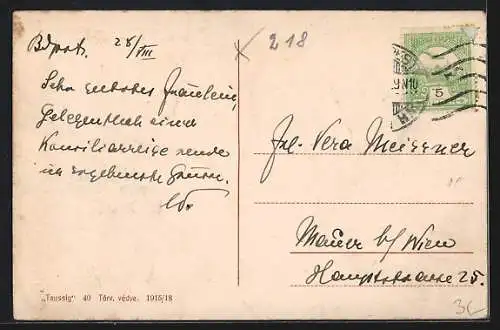 Bdpest. 28/VIII
218
Sehr geehrtes Fräulein,
Gelegentlich einer
Konsiliarreise sende
ich ergebenste Grüsse.
5
Frl. Vera Meissner
Mauer b/ Wien
Hauptstrasse 25.
"Taussig" 40 Törv. védve. 1915/18